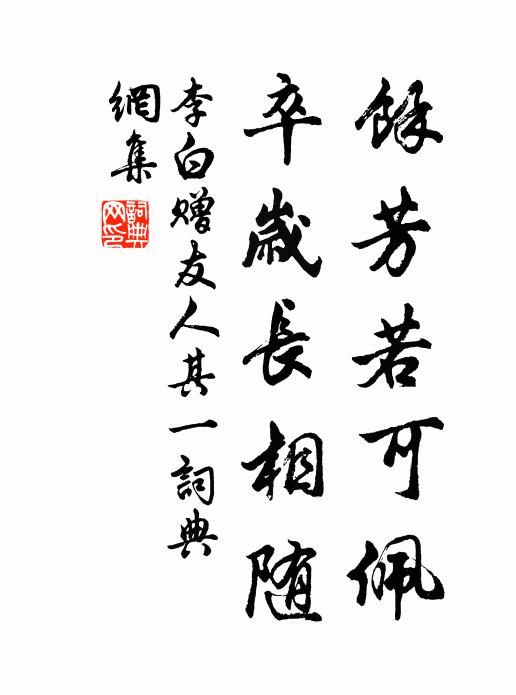 餘芳若可佩
卒歲長相随
李白贈友人其一詞典
網集
詞典網印